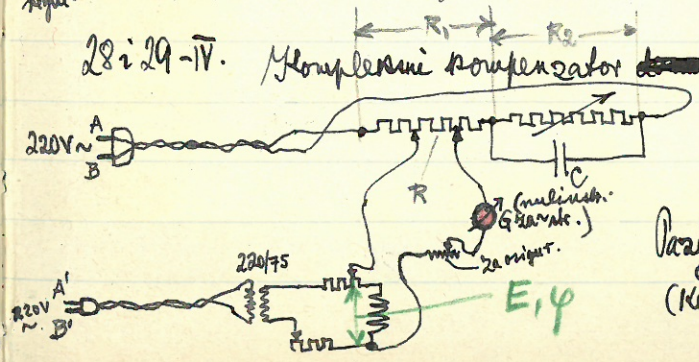 R₁ R₂
28 i 29-IV. Kompleksni kompenzator
220V~ A
B
R
C
(nulinstr.
G za ~ str.)
za osigur.
220/75
220V A'
~ B'
E, φ